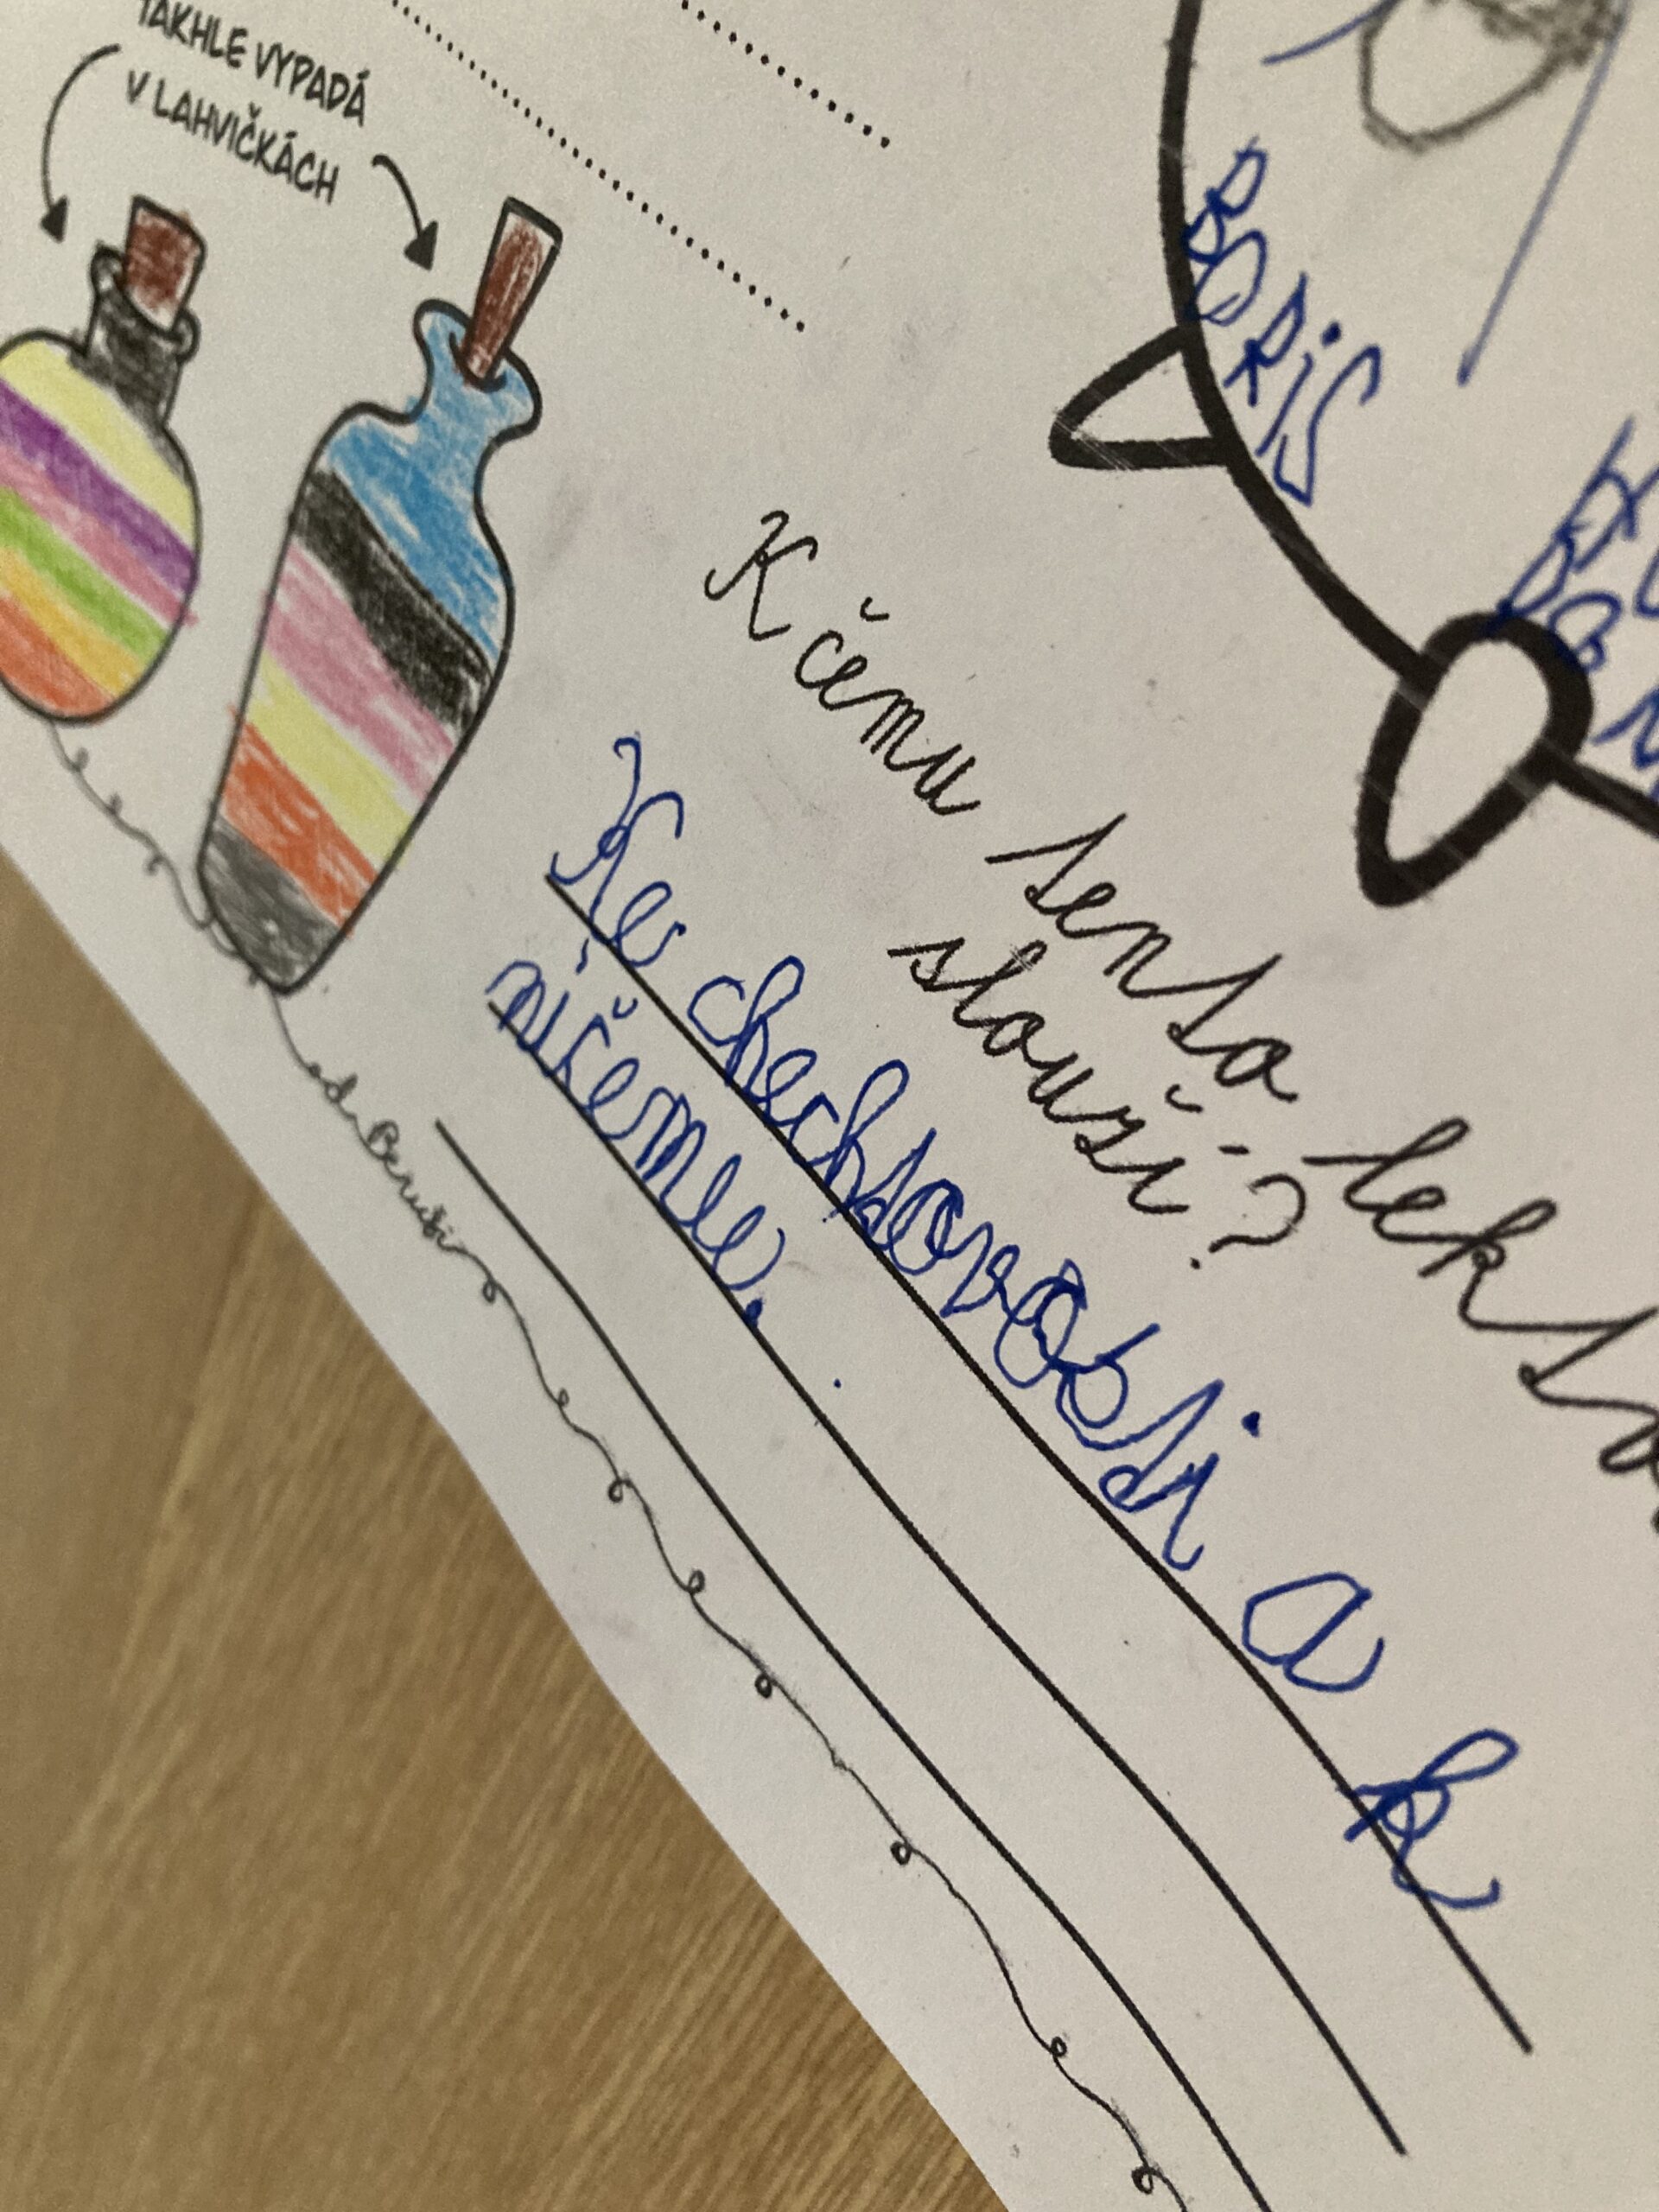 TAKHLE VYPADÁ
V LAHVIČKÁCH
BRIS
K čemu tento lektv
slouží?
Ke chechtovobti a k
ničemu.
od Berušti